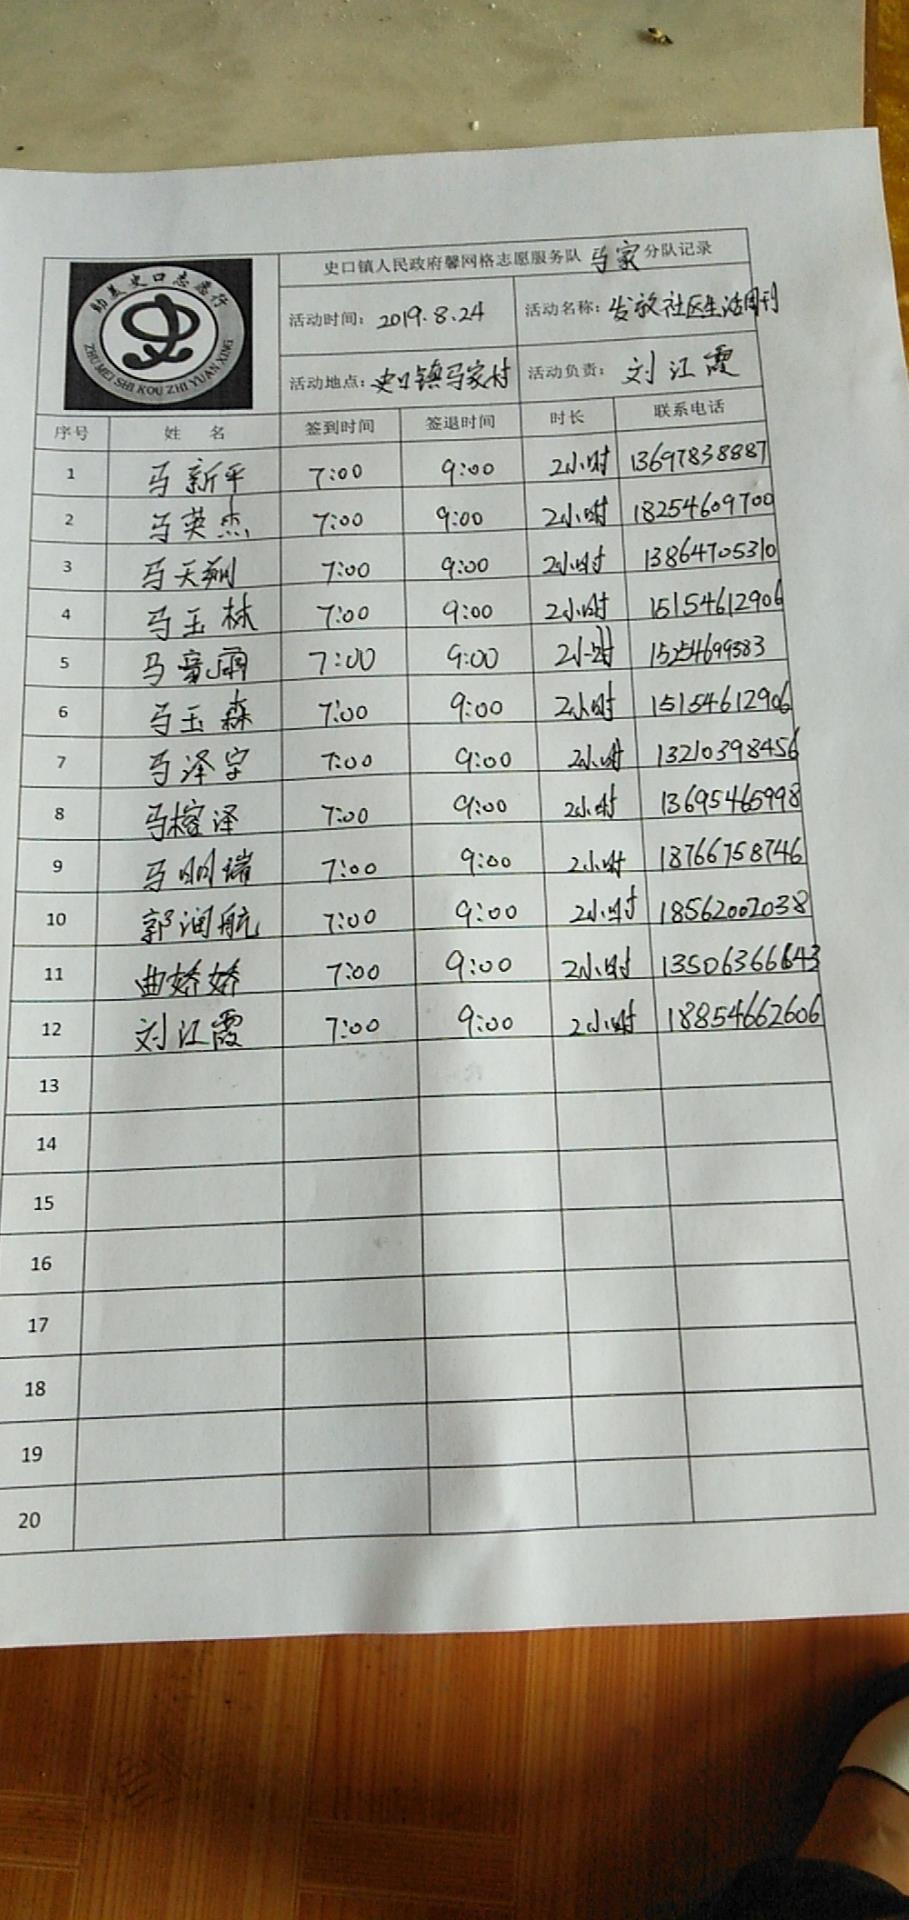 助美史口志愿行
ZHU MEI SHI KOU ZHI YUAN XING
史口镇人民政府馨网格志愿服务队 马家 分队记录
活动时间：2019.8.24 活动名称：发放社区生活周刊
活动地点：史口镇马家村 活动负责：刘江霞
序号 姓 名 签到时间 签退时间 时长 联系电话
1 马新平 7:00 9:00 2小时 13697838887
2 马英杰 7:00 9:00 2小时 18254609700
3 马天翔 7:00 9:00 2小时 13864705310
4 马玉林 7:00 9:00 2小时 15154612906
5 马 7:00 9:00 2小时 15254699583
6 马玉森 7:00 9:00 2小时 15154612906
7 马泽宇 7:00 9:00 2小时 13210398456
8 马榕泽 7:00 9:00 2小时 13695465998
9 马明瑞 7:00 9:00 2小时 18766758746
10 郭润航 7:00 9:00 2小时 18562002038
11 曲娇娇 7:00 9:00 2小时 13506366643
12 刘江霞 7:00 9:00 2小时 18854662606
13
14
15
16
17
18
19
20